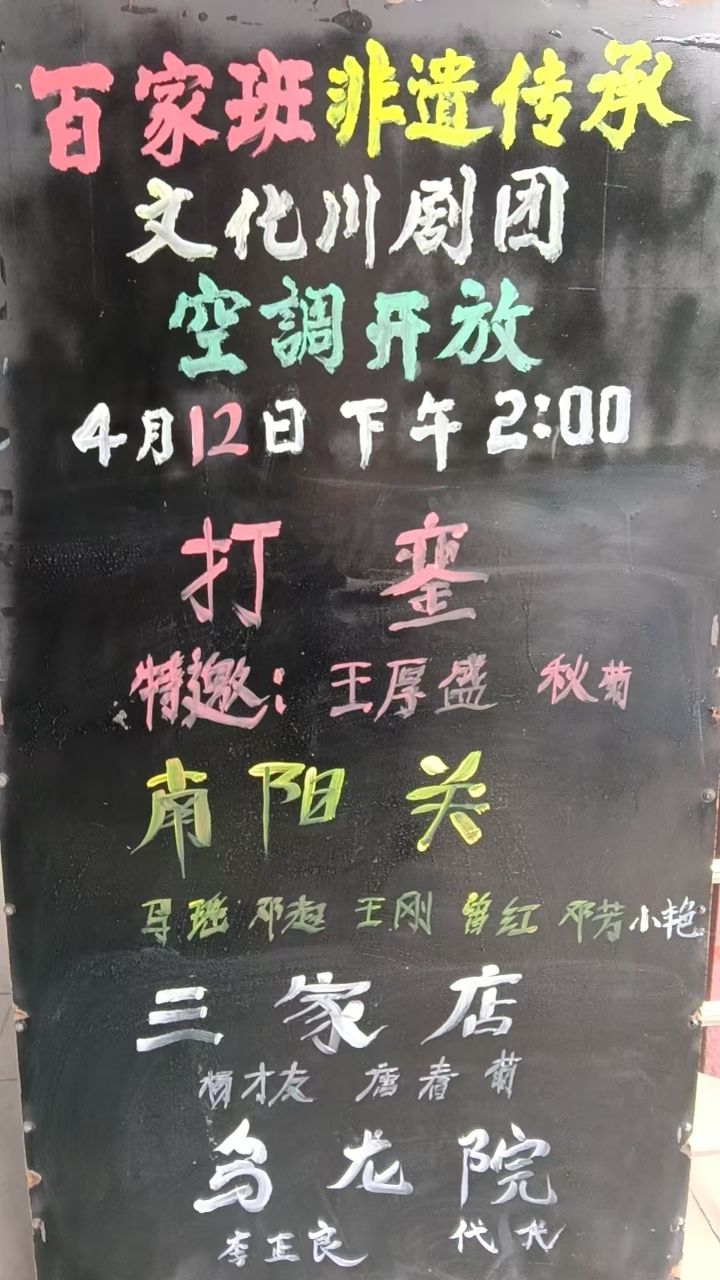 百家班非遗传承
文化川剧团
空調开放
4月12日 下午 2:00
打銮
特邀：王厚盛 秋菊
南阳关
马瑶 邓超 王刚 曾红 邓芳 小艳
三家店
杨才友 唐春菊
乌龙院
李正良 代